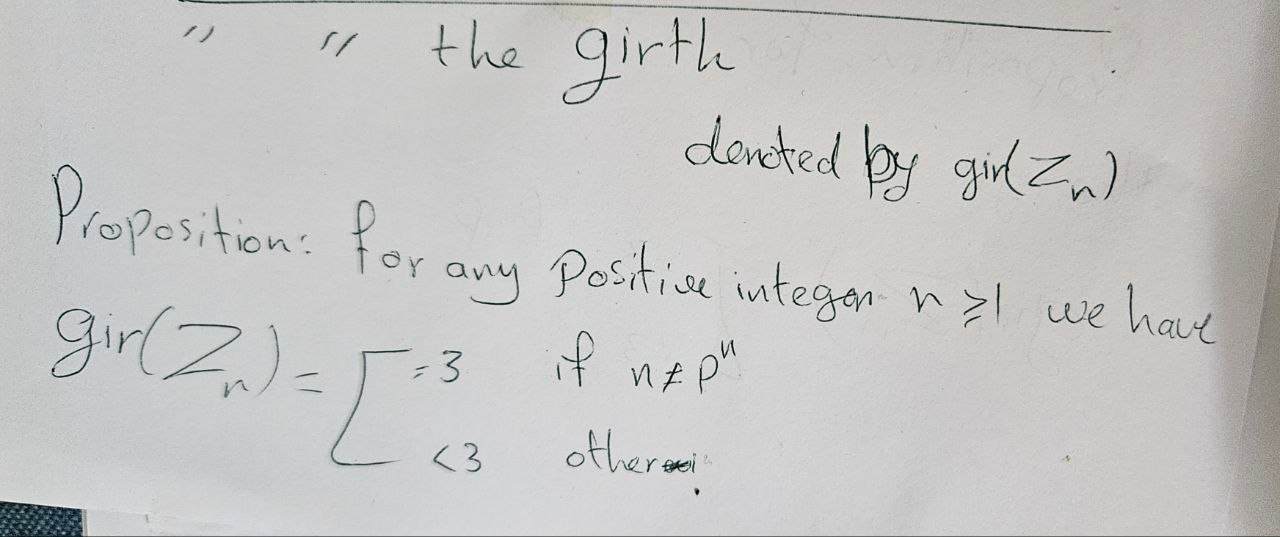 " " the girth
denoted by gir(Zn)
Proposition: for any Positive integer n ≥ 1 we have
gir(Zn) = [ = 3 if n ≠ pⁿ
< 3 other